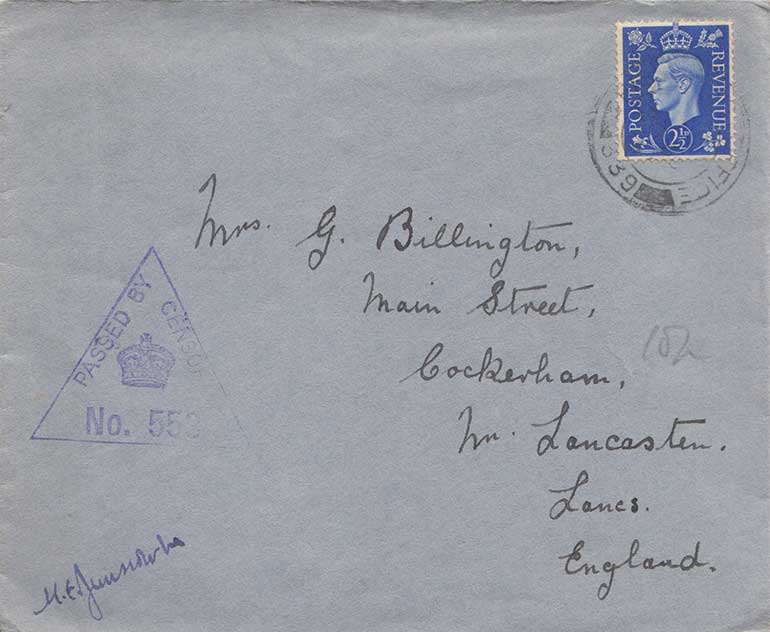 POSTAGE
REVENUE
2½D
339
Mrs. G. Billington,
Main Street,
Cockerham,
Nr. Lancaster.
Lancs.
England.
PASSED BY
No. 55